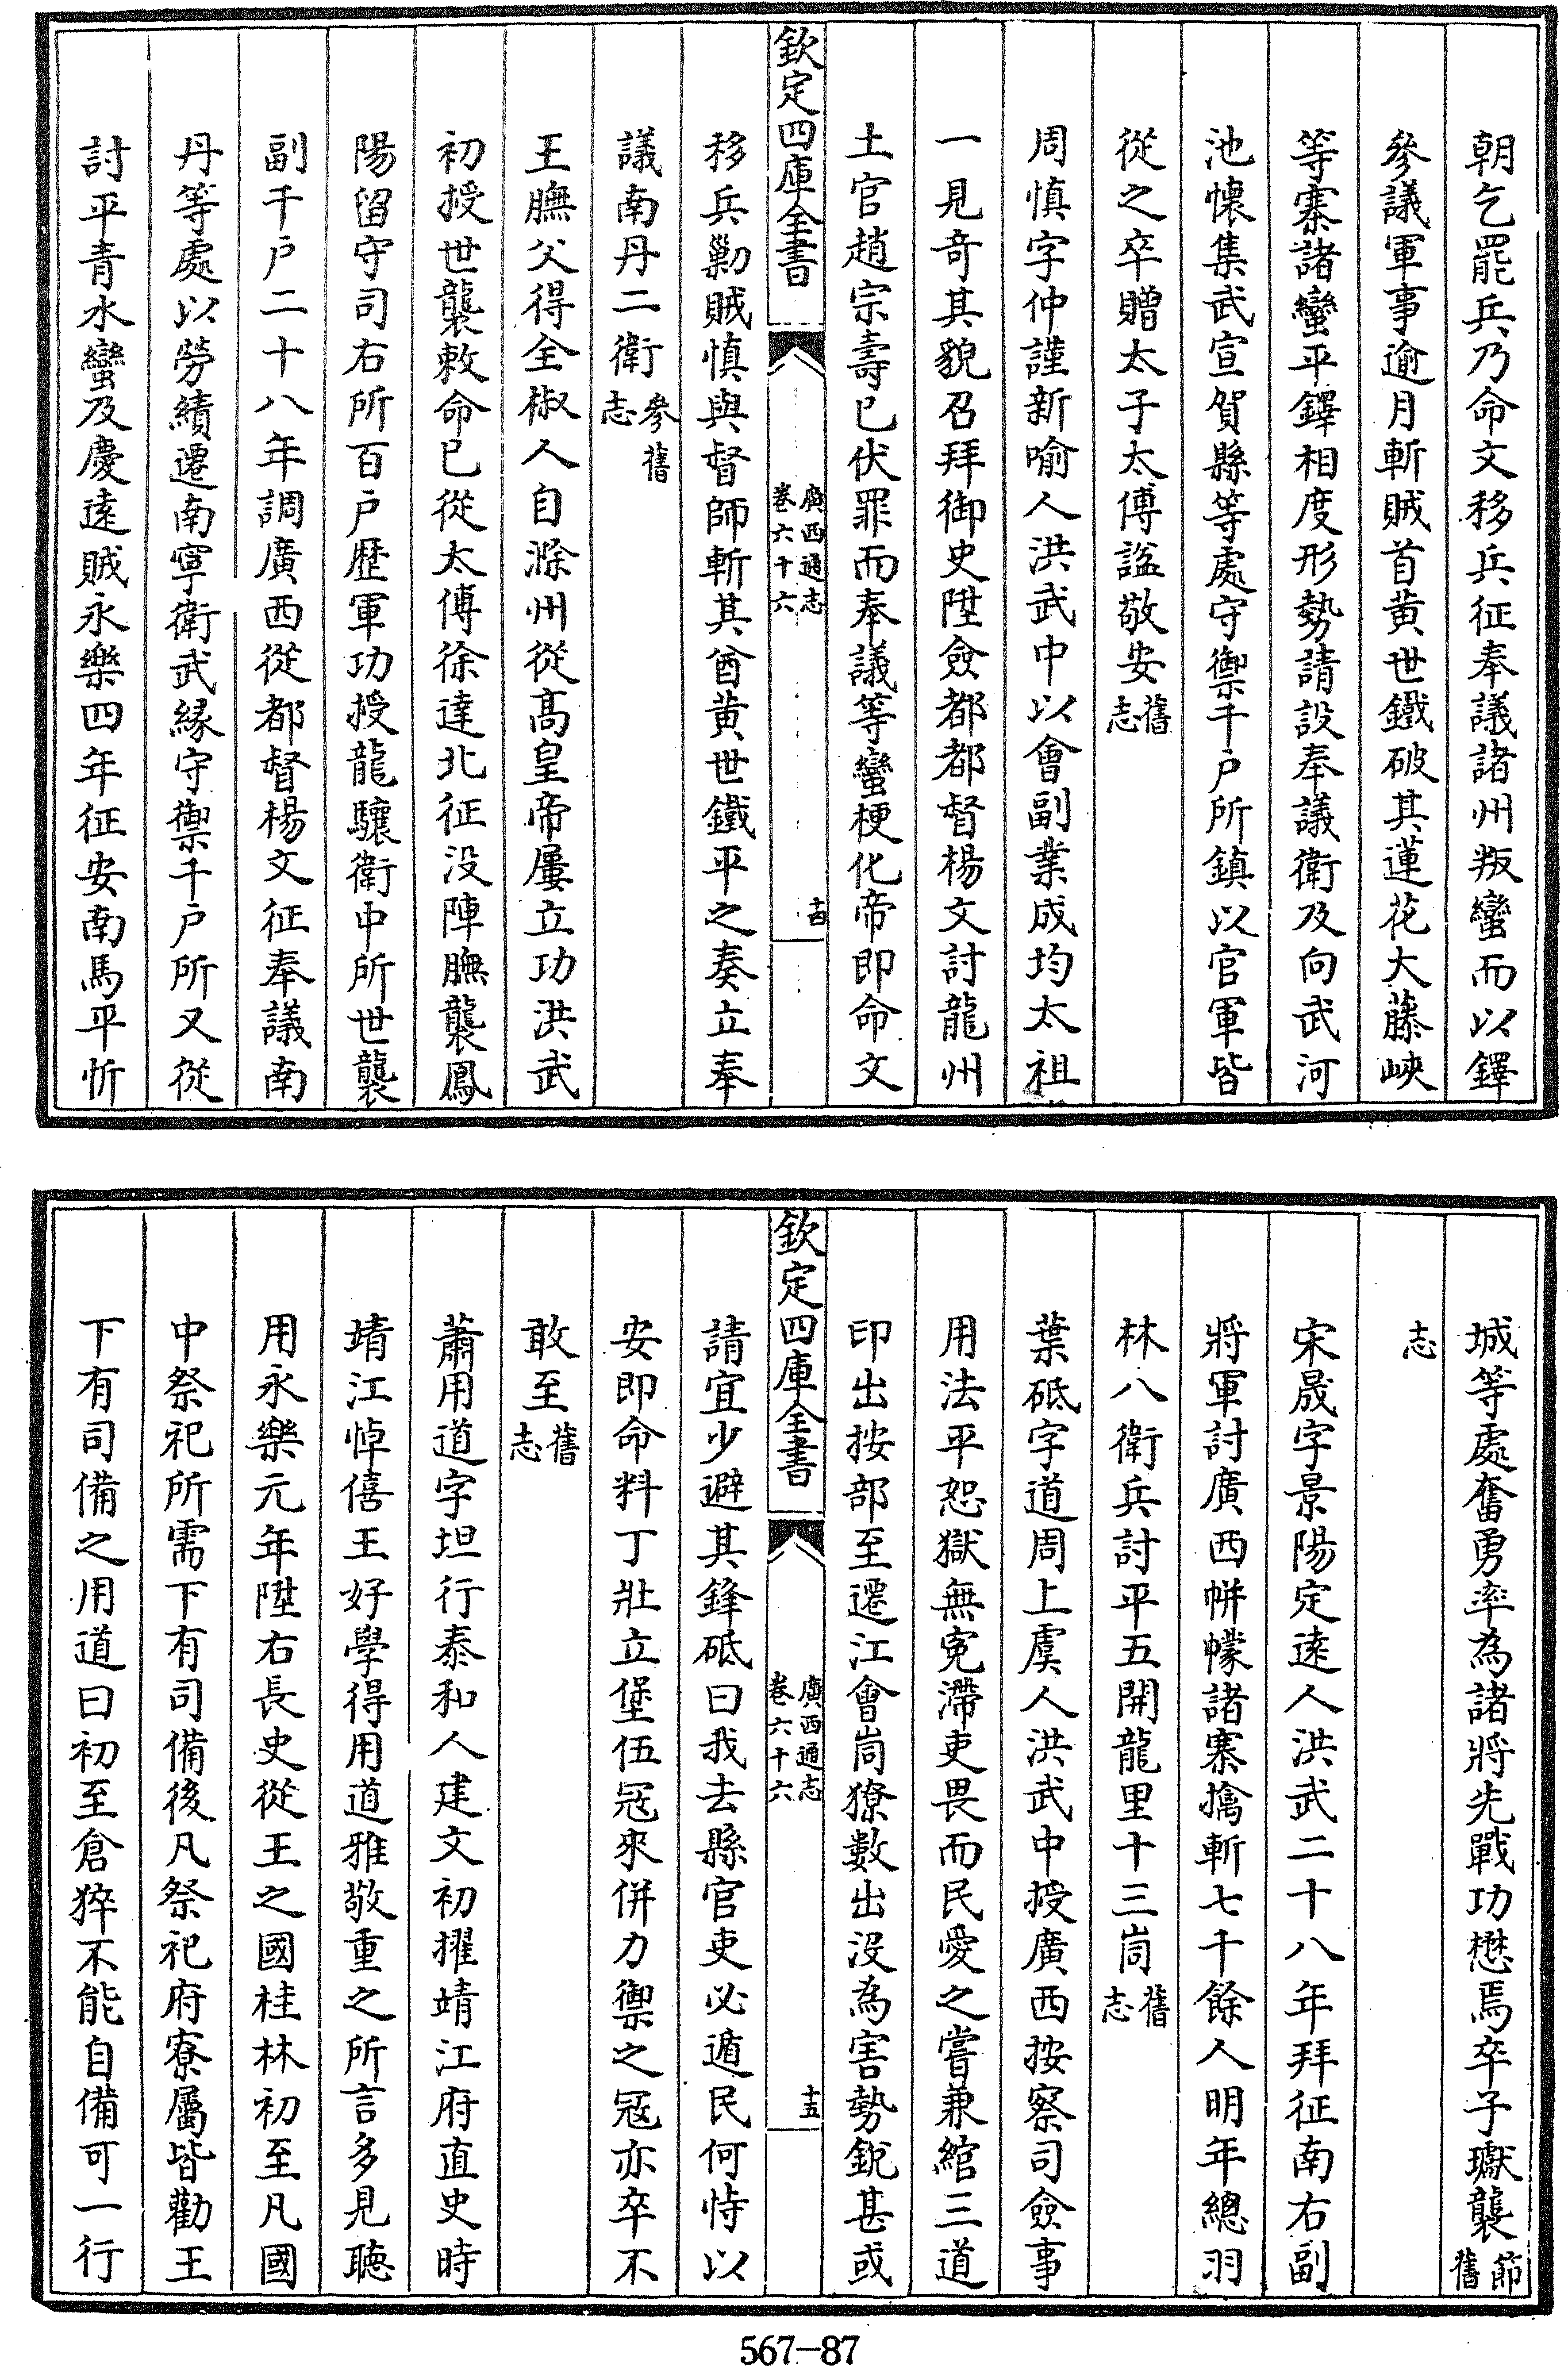 朝乞罷兵乃命文移兵征奉議諸州叛蠻而以鐸
參議軍事逾月斬賊首黄世鐵破其蓮花大藤峽
等寨諸蠻平鐸相度形勢請設奉議衛及向武河
池懷集武宣賀縣等處守禦千戶所鎮以官軍皆
從之卒贈太子太傅諡敬安舊志
周慎字仲謹新喻人洪武中以會副業成均太祖
一見奇其貌召拜御史陞僉都都督楊文討龍州
土官趙宗壽已伏罪而奉議等蠻梗化帝即命文
欽定四庫全書
廣西通志
卷六十六
十四
移兵勦賊慎與督師斬其酋黄世鐵平之奏立奉
議南丹二衛參舊志
王膴父得全椒人自滁州從高皇帝屢立功洪武
初授世襲敕命已從太傅徐達北征没陣膴襲鳳
陽留守司右所百戶歷軍功授龍驤衛中所世襲
副千戶二十八年調廣西從都督楊文征奉議南
丹等處以勞績遷南寧衛武緣守禦千戶所又從
討平青水蠻及慶遠賊永樂四年征安南馬平忻
城等處奮勇率為諸將先戰功懋焉卒子瓛襲節舊
志
宋晟字景陽定遠人洪武二十八年拜征南右副
將軍討廣西帡幪諸寨擒斬七千餘人明年總羽
林八衛兵討平五開龍里十三峝舊志
葉砥字道周上虞人洪武中授廣西按察司僉事
用法平恕獄無寃滯吏畏而民愛之嘗兼綰三道
印出按部至遷江會峝獠數出沒為害勢銳甚或
欽定四庫全書
廣西通志
卷六十六
十五
請宜少避其鋒砥曰我去縣官吏必遁民何恃以
安即命料丁壯立堡伍冦來併力禦之冦亦卒不
敢至舊志
蕭用道字坦行泰和人建文初擢靖江府直史時
靖江悼僖王好學得用道雅敬重之所言多見聽
用永樂元年陞右長史從王之國桂林初至凡國
中祭祀所需下有司備後凡祭祀府寮屬皆勸王
下有司備之用道曰初至倉猝不能自備可一行
567-87